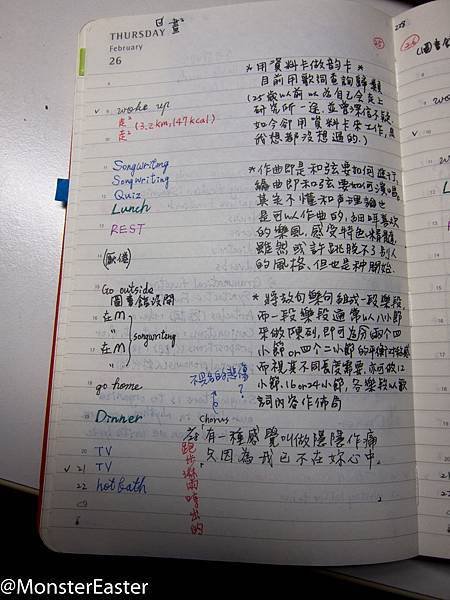 日畫
THURSDAY
February
26
25
v 9 woke up
走²
走² (3.2km, 147kcal)
Songwriting
Songwriting
Quiz
Lunch
REST
Go outside
圖書館沒開
在M
"
在M
songwriting
go home
Dinner
TV
v 21 TV
22 hot bath
*用資料卡做韵卡*
目前用歌詞查詢歸類
(25歲以前以為自己會走上
研究所一途,並當深信不疑,
如今卻用資料卡來工作,是
我想都沒想過的.)
*作曲即是和弦要如何進行,
編曲即和弦要如何演唱.
其定不懂和聲理論也
是可以作曲的,細耳喜歡
的樂風,感受特色精髓,
雖然或許跳脫不了別人
的風格,但也是种開始.
*將放句樂句組成一段樂段
而一段樂段通常以八小節
來做陳列,即可為分兩个四
小節on四个二小節的平衡对稱感
而視其不同長度需要,亦可做12
小節,16 or 24小節,各樂段以歌
詞內容作佈局
不具名的悲傷
?
Chorus
有一種感覺叫做隱隱作痛
只因為我已不在妳心中.
跑步淋雨時出的
26
@MonsterEaster